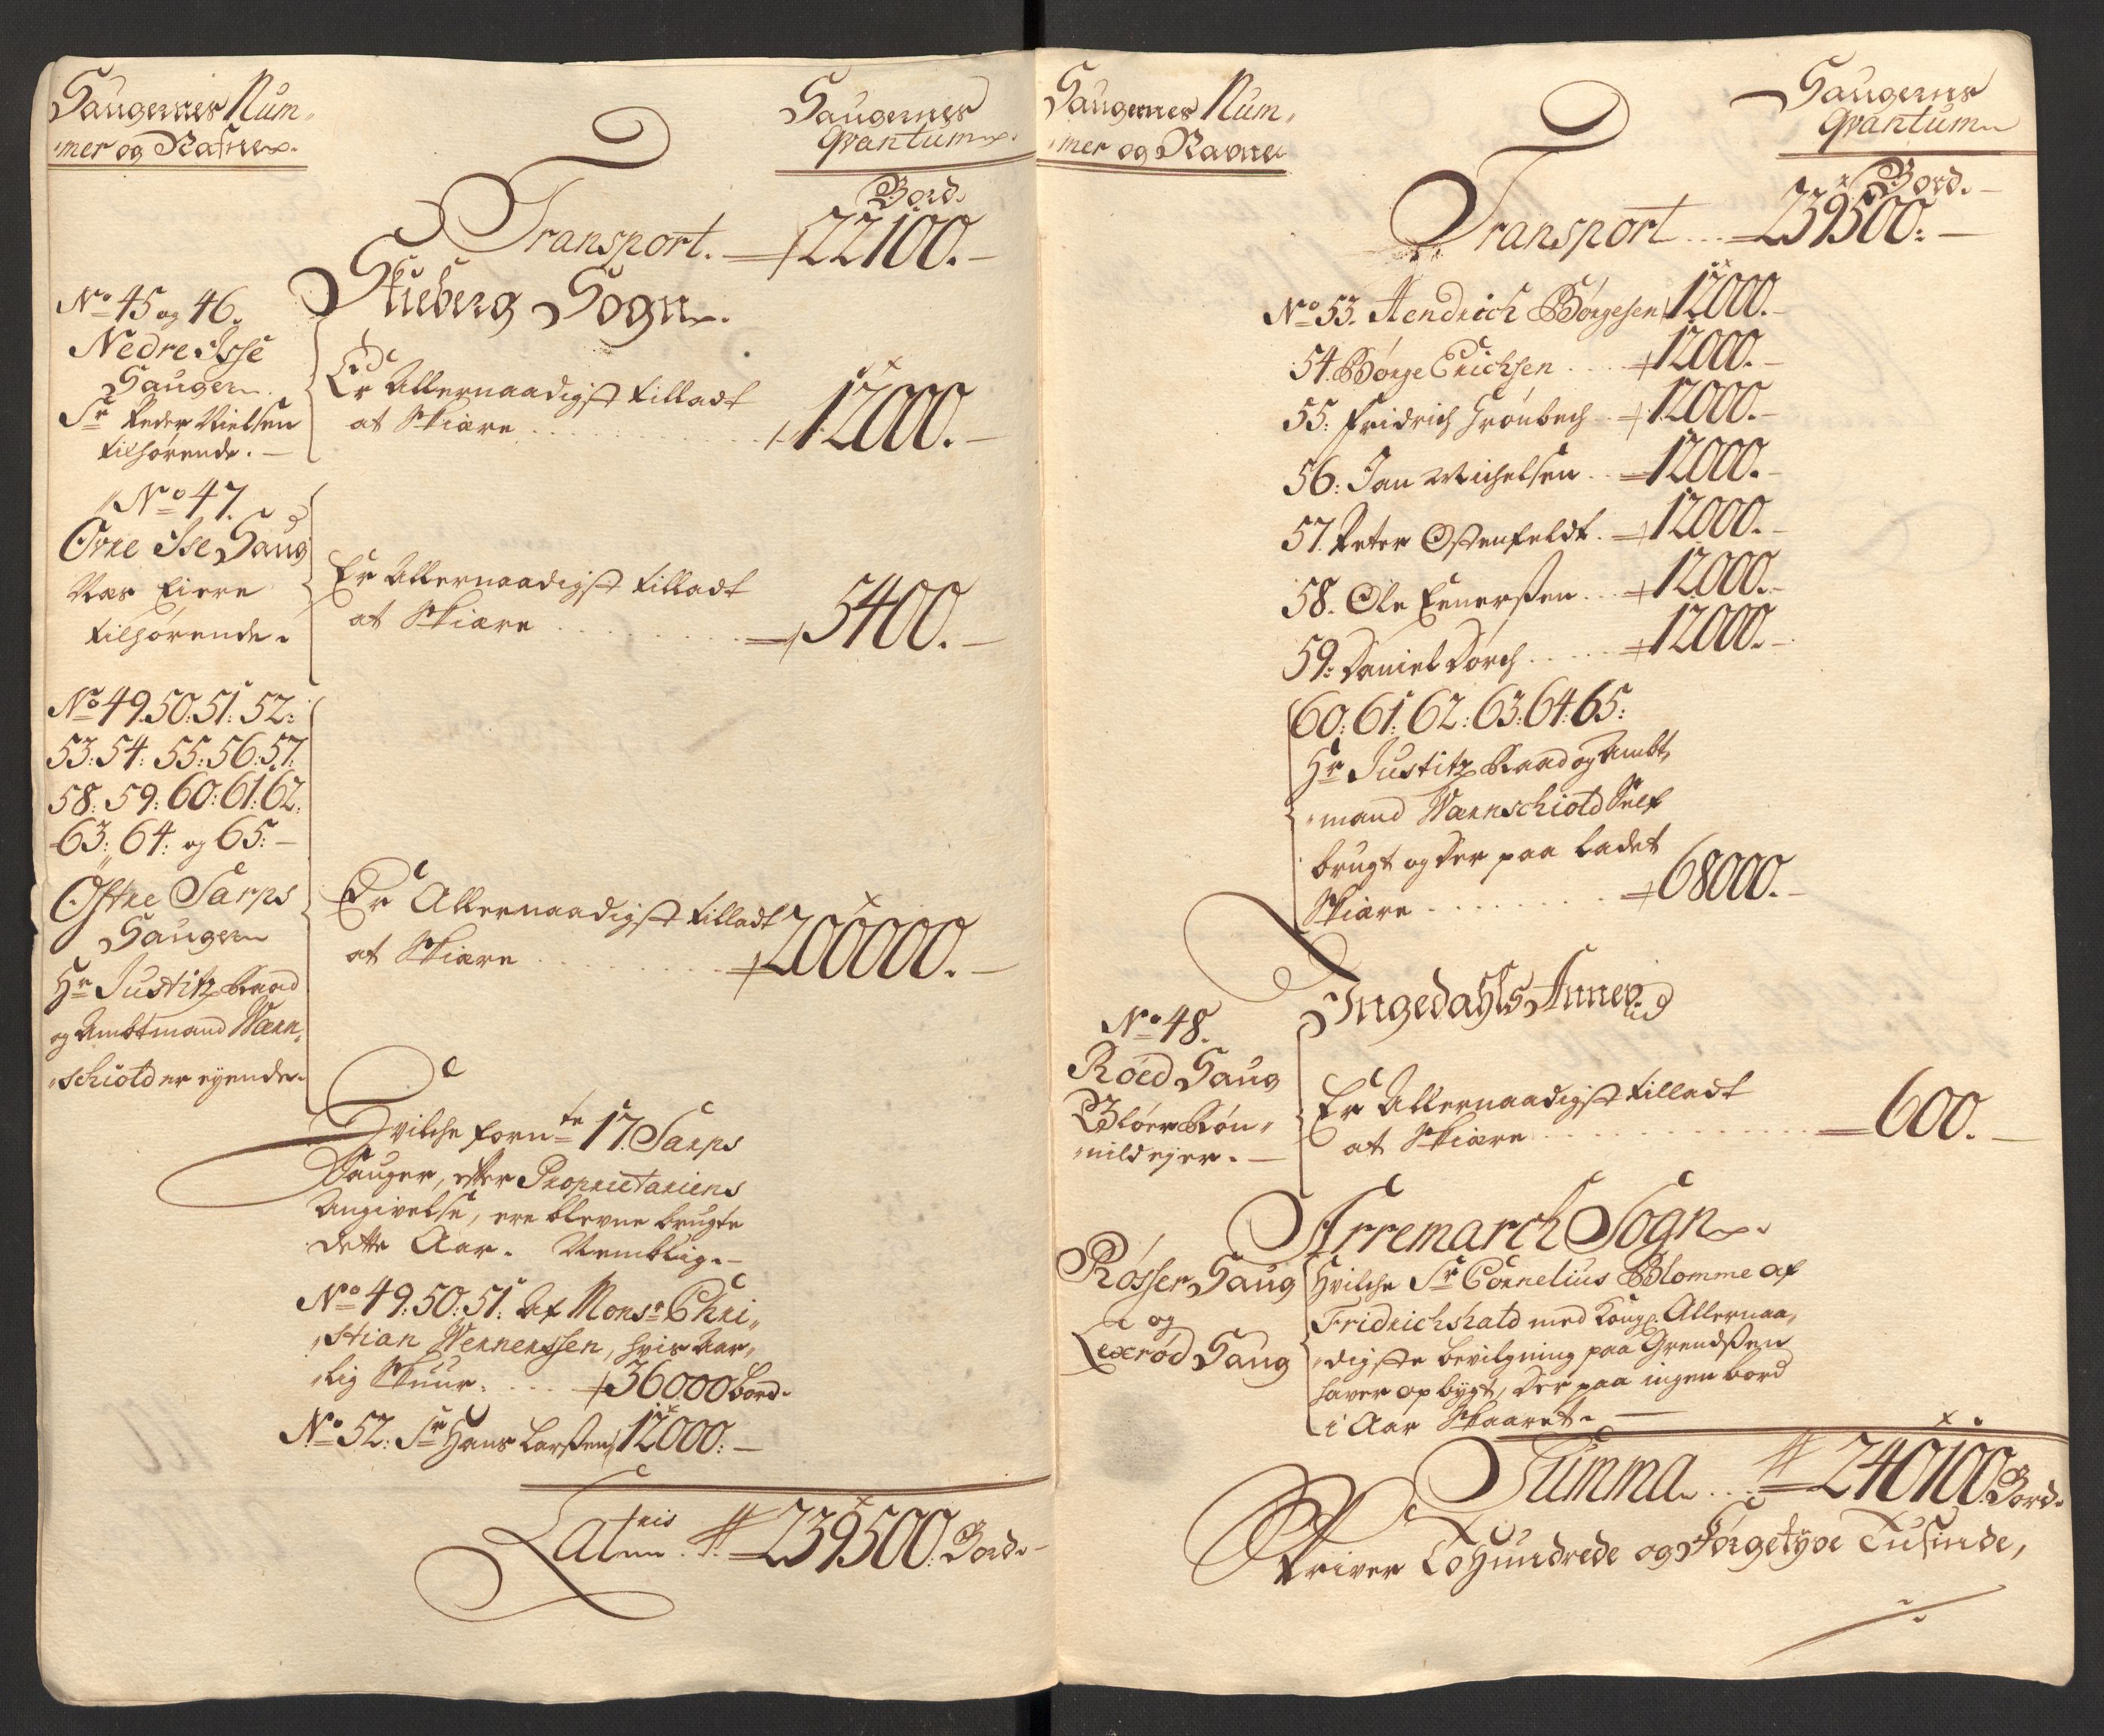 Saugernes Num-
mer og Nafne.
Saugernes
Qvantum
Bord.
Transport. 22100.
Skieberg Sogn.
No 45 og 46.
Nedre Isse
Sauger
Sr Peder Nielsen
tilhørende.
Er Allernaadigst tilladt
at Skiære 12000.
No 47.
Øvre Ise Saug
Næs Eiere
tilhørende.
Er Allernaadigst tilladt
at Skiære 5400.
No 49. 50: 51: 52:
53: 54: 55: 56: 57:
58: 59: 60: 61: 62:
63: 64: og 65:
Østre Sarps
Sauger
Hr Justitz Raad
og Ambtmand Wærn-
schiold er eyende.
Er Allernaadigst tilladt
at Skiære 200000.
Hvilche fornte 17. Sarps
Sauger, efter Proprietariens
Angivelse, ere blevne brugte
dette Aar. Nemblig.
No 49: 50: 51: Af Monsr Chri-
stian Wernerssen, hvis Aar-
lig Skuur. 36000 bord.
No 52: Sr Hans Larssen 12000:
Lateris 239500. Bord.
Saugernes Num-
mer og Navne
Saugerns
Qvantum
Bord.
Transport 239500:
No 53. Hendrich Børgesen 12000.
54. Børge Erichsen 12000.
55: Fridrich Grønbech 12000.
56: Jan Michelsen 12000.
57. Peter Ostenfeldt. 12000.
58. Ole Evenssen 12000.
59: Daniel Dorch 12000.
60: 61: 62: 63: 64: 65:
Hr Justitz Raad og Ambt-
mand Wærnschiold Self
brugt og der paa ladet
Skiære 68000.
Ingedahls Annex
No 48.
Røed Saug
Bløer Røn-
nild ejer.
Er Allernaadigst tilladt
at Skiære 600.
Arremarch Sogn
Røsser Saug
og
Lexrød Saug
Hvilche Sr Cornelius Blomme af
Fridrichshald med Kongl. Allernaa-
digste bevilgning paa Grendssen
haver opbygt, der paa ingen bord
i Aar Skaaret.
Summa 240100. Bord.
Skriver To Hundrede og Førgetyve Tusinde,